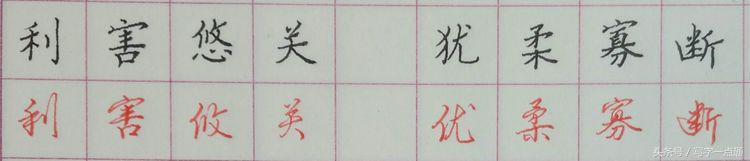 利害悠关 犹柔寡断
利害攸关 优柔寡断
头条号/写字一点通